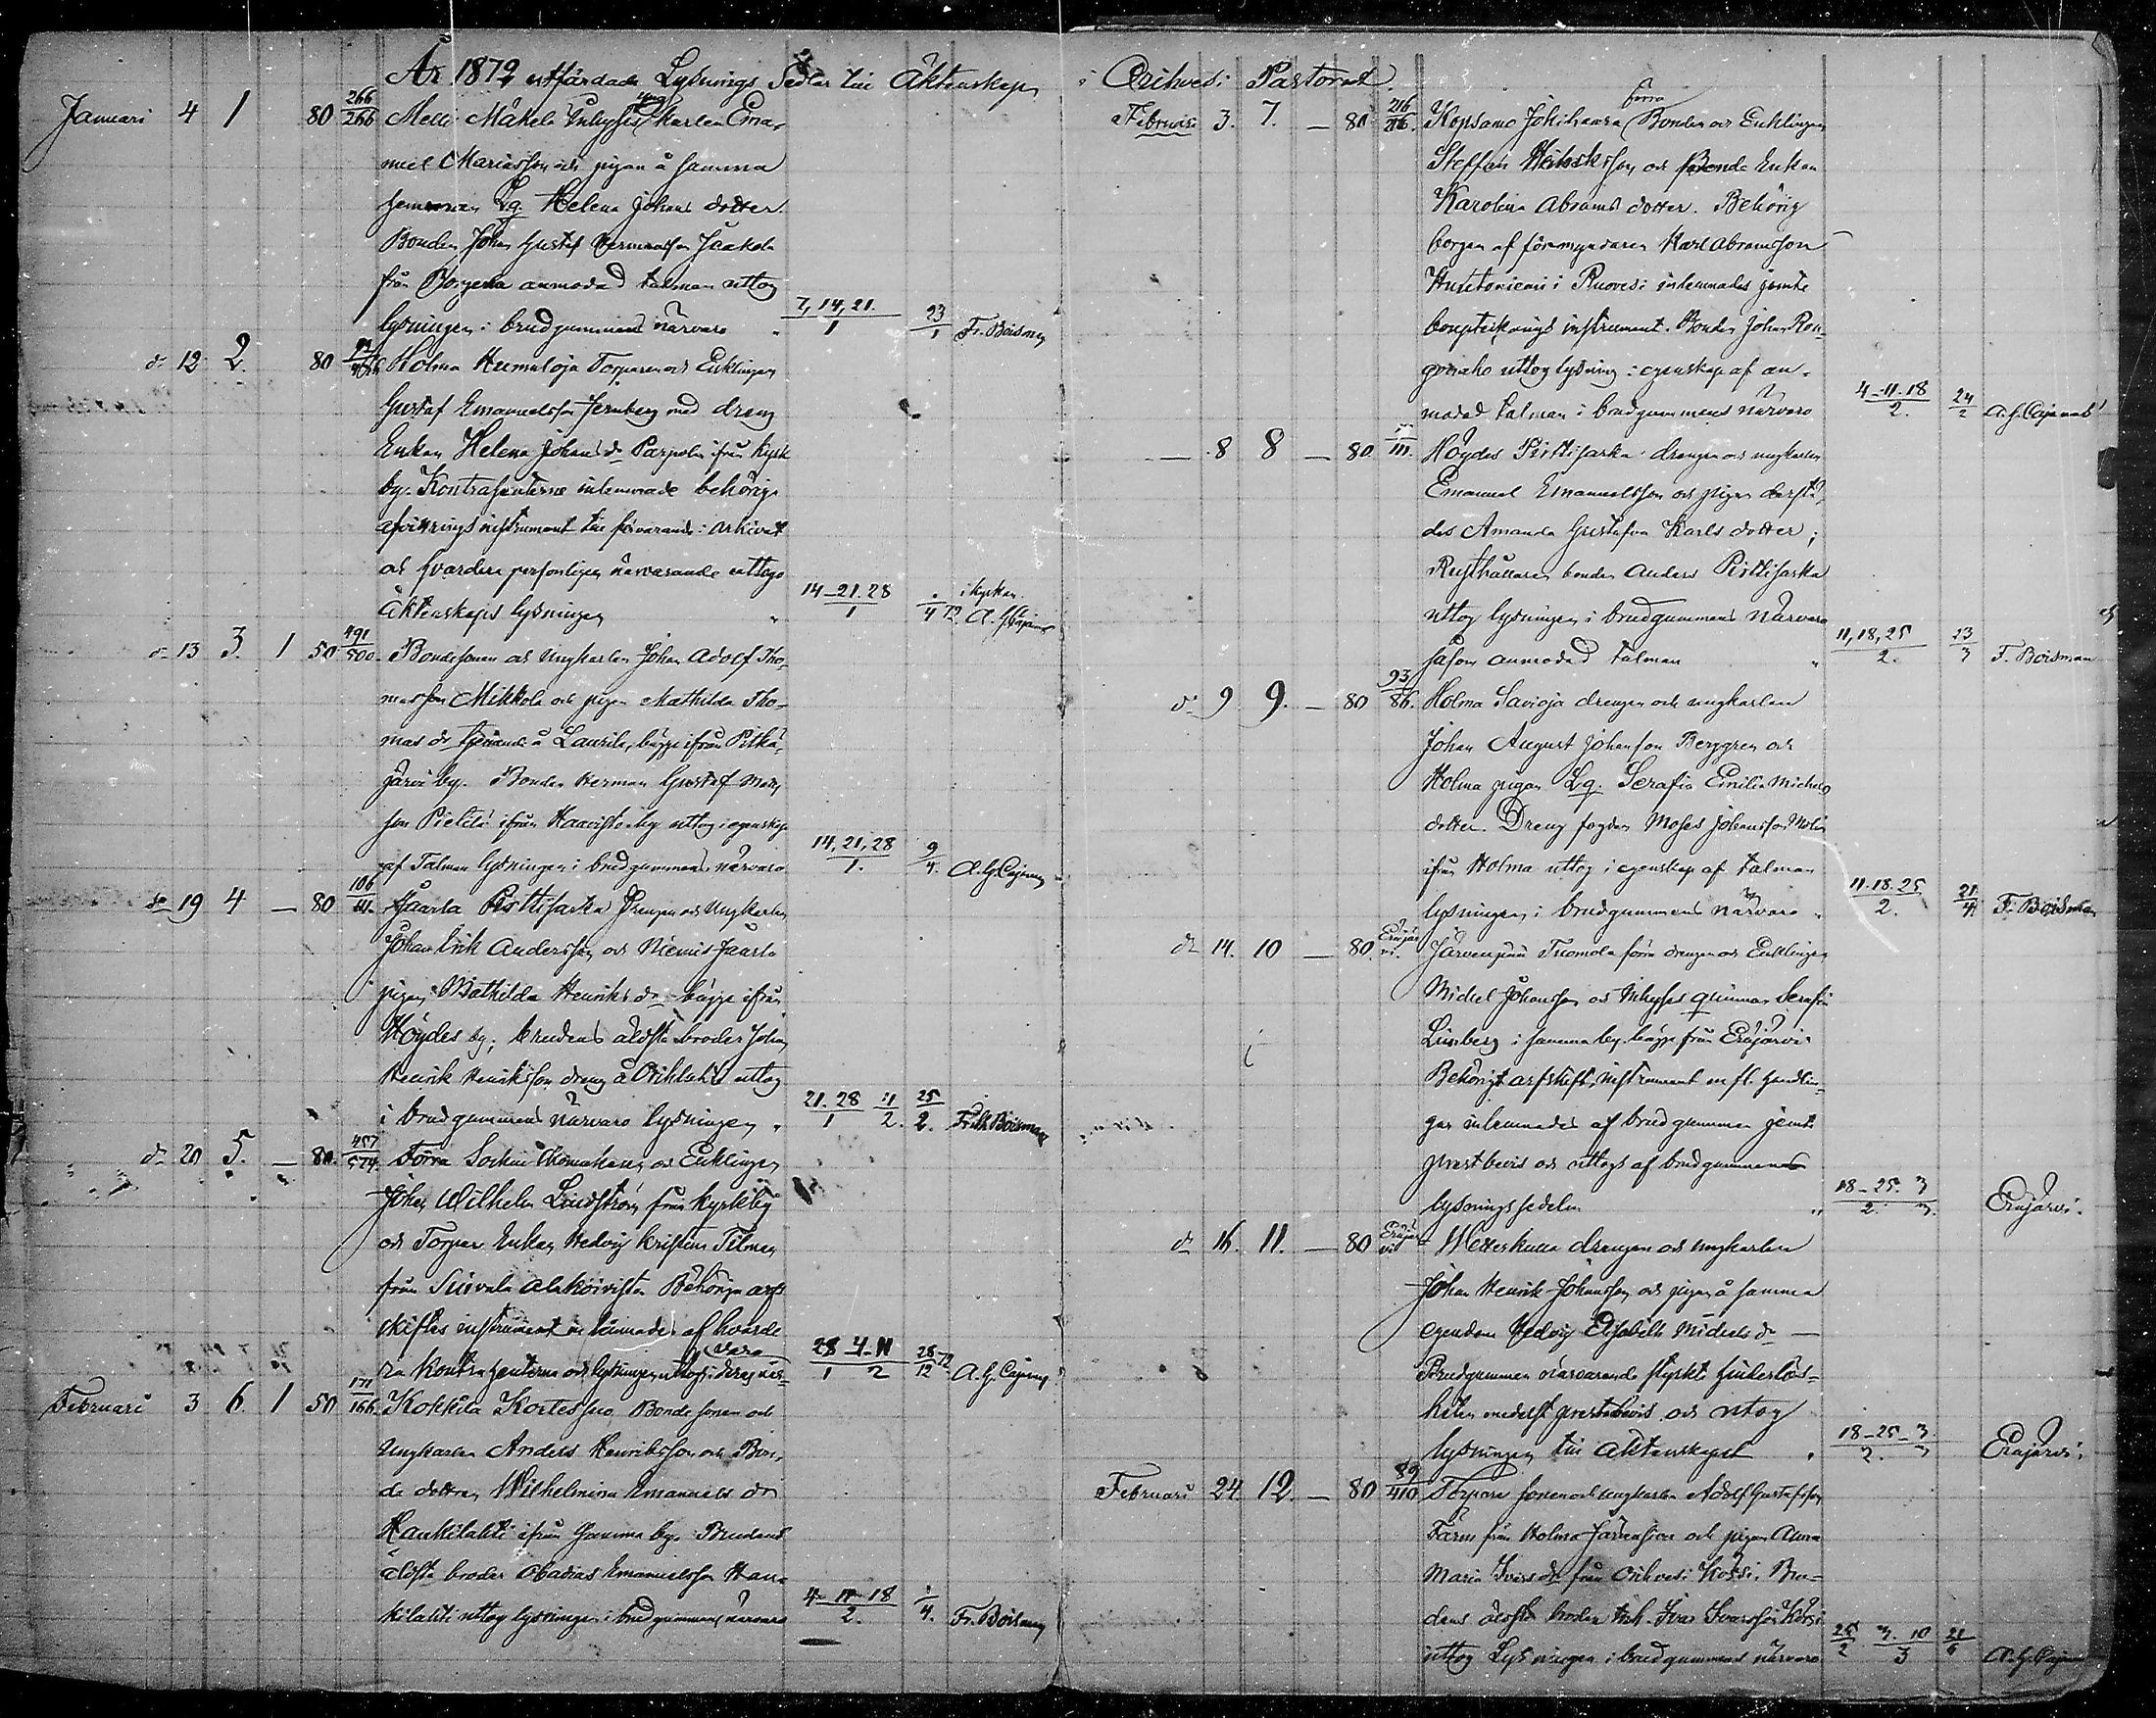 År 1872 utfärdade Lysnings Sedlar till Äktenskap i Orihvesi Pastorat.
Januari 4 1 80 266/266 Melli Mäkelä Inhyses Karlen Ema-
nuel Mariasson och pigan å samma
hemman Lg. Helena Johans dotter.
Bonden Johan Gustaf Hermansson Jaakola
från anmodad talman uttog
lysningen i brudgummens närvaro " 7, 14, 21./1 23/1 Fr. Boisman
do 12 2. 80 Holma Humaloja Torparen och Enklingen
Gustaf Emanuelsson Jernberg med dreng
Enkan Helena Johans dr Parpola ifrån Kyrk
by. Kontrahenterne inlemnade behörige
afvittrings instrument till förvarande i arkivet
och hvardera personligen närvarande uttogo
äktenskaps lysningen " 14-21.28/1 /4 72 i kyrkan. A. G. Cajanus
do 13 3. 1 50 491/500 Bondesonen och Ungkarlen Johan Adolf Tho-
masson Mikkola och pigan Mathilda Tho-
mas dr tjenande å Laurila, bägge ifrån Pitkä-
järvi by. Bonden Herman Gustaf Mats
son ifrån Haavisto by uttog i egenskap
af Talman lysningen i brudgummens närvaro 14, 21, 28/1. 9/4. A. G. Cajanus
do 19 4 — 80 106/111. Saarla Pirttisarka Drengen och Ungkarlen
Johan Erik Andersson och Niemis Saarla
pigan Mathilda Henriks dr bägge ifrån
Höydes by; brudens äldsta broder Johan
Henrik Henriksson dreng å Orihlahti uttog
i brudgummens närvaro lysningen " 21.28/1 11/2. 25/2. Fr. Boisman
do 20 5. — 80. 457/574. Förra Socken och Enklingen
Johan Wilhelm Lindström från kyrkby
och Torpar Enkan Hedvig Kristina Tilman
från Suivala Alakoivisto Behöriga arf-
skiftes instrument inlemnades af hvarde
ra Kontrahenterna och lysningen uttogs i deras när-
varo 28/1 4-11/2 28/12 72 A. G. Cajanus
Februari 3 6. 1 50 171/166. Kokkila Kortessuo Bonde sonen och
Ungkarlen Anders Henriksson och Bon-
de dottren Wilhelmina Emanuels dr
Haukilahti ifrån samma by. Brudens
äldsta broder Obadias Emanuelsson Hau-
kilahti uttog lysningen i brudgummens närvaro 4-11-18/2. /4. Fr. Boisman
Februari 3. 7. — 80 216/216. Kopsamo Juhikaara förra Bonden och Enklingen
Steffan Henriksson och Bonde Enkan
Karolina Abrams dotter. Behörig
borgen af förmyndaren Karl Abramsson
i Ruovesi inlemnades jemte
bouptecknings instrument. Bonden Johan Ron-
gonaho uttog lysning i egenskap af an-
modad talman i brudgummens närvaro 4-11.18/2. 24/2 A. G. Cajanus
— 8 8 — 80 111. Höydes Pirttisarka drengen och ungkarlen
Emanuel Emanuelsson och pigan derstä-
des Amanda Gustafva Karls dotter;
Rusthållaren bonden Anders Pirttisarka
uttog lysningen i brudgummens närvaro
såsom anmodad talman " 11, 18, 25/2. 23/3 F. Boisman
do 9 9. — 80 93/86. Holma Savioja drengen och ungkarlen
Johan August Johansson Berggren och
Holma pigan Lg. Serafia Emilia Michels
dotter. Dreng fogden Moses Johansson
ifrån Holma uttog i egenskap af talman
lysningen i brudgummens närvaro " 11.18.25/2. 21/4. F. Boisman
do 14. 10 — 80 Eräjärvi. Järvenpää Tuomola förra drengen och Enklingen
Michel Johansson och Inhyses qvinnan Serafia
Limberg i samma by. bägge från Eräjärvi
Behörigt arfskift. instrument m. fl. handlin-
gar inlemnades af brudgummen jemte
prestbevis och uttogs af brudgummen
lysningssedeln " 18-25./2. 3/3. Eräjärvi.
do 16. 11. — 80 Eräjärvi Wetterkulla drengen och ungkarlen
Johan Henrik Johansson och pigan å samma
egendom Hedvig Elisabeth Michels dr —
Brudgummen närvarande styrkte hinderlös-
heten medelst prestbevis och uttog
lysningen till Äktenskapet " 18-25/2. 3/3 Eräjärvi.
Februari 24. 12. — 80 89/410 Torpare sonen och ungkarlen Adolf Gustafsson
Färm från Holma och pigan Anna
Maria Ivars dr från Orihvesi Kossi. Bru-
dens äldsta broder Inh. Ivar Ivarsson Kossi
uttog Lysningen i brudgummens närvaro 25/2 3. 10/3 21/6 A. G. Cajanus